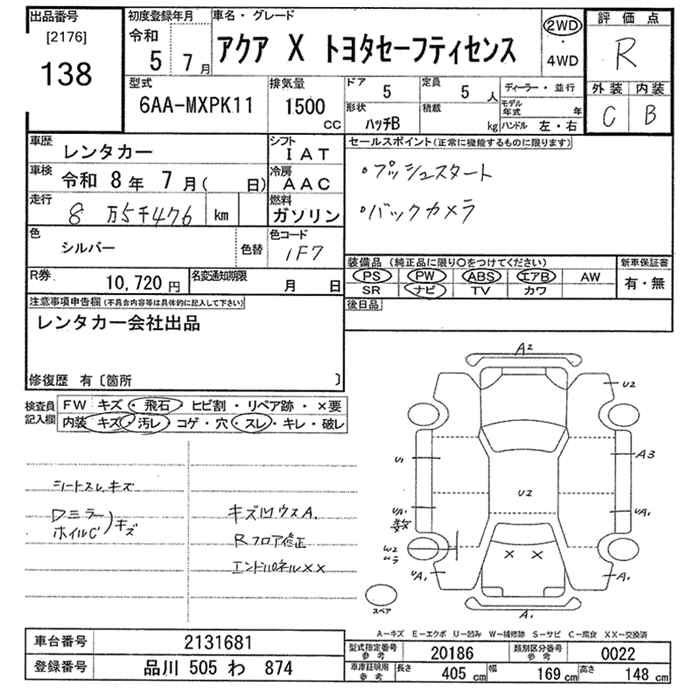 出品番号 初度登録年月 車名・グレード 2WD・4WD 評価点
[2176] 令和 5 7月 アクア X トヨタセーフティセンス R
138
型式 排気量 ドア 定員 ディーラー・並行 外装 内装
6AA-MXPK11 1500 CC 5 5人 モデル年式 年 C B
形状 積載 ハンドル 左・右
ハッチB kg
車歴 レンタカー シフト IAT セールスポイント(正常に機能するものに限ります)
車検 令和 8年 7月( 日) 冷房 AAC ・プッシュスタート
走行 8万5千476 km 燃料 ガソリン ・バックカメラ
色 シルバー 色替 色コード 1F7
装備品(純正品に限り○をつけてください) 新車保証書
R券 10,720円 名変通知期限 月 日 PS PW ABS エアB AW 有・無
SR ナビ TV カワ
注意事項申告欄(不具合内容等は具体的に記入して下さい) 後日品
レンタカー会社出品
修復歴 有〔箇所 〕
検査員記入欄 FW キズ・飛石・ヒビ割・リペア跡・×要
内装 キズ・汚レ・コゲ・穴・スレ・キレ・破レ
シートスレ キズ
ロミラー
ホイルC )キズ
キズ凹ウスA.
Rフロア修正
エンドパネル××
A2
U2
U1 A3
U2
UA1 UA1
数
W2
× ×
UA1 A1
A1
スペア
A-キズ E-エクボ U-凹み W-補修跡 S-サビ C-腐食 XX-交換済
車台番号 2131681 型式指定番号 参考 20186 類別区分番号 参考 0022
登録番号 品川 505 わ 874 車庫証明用 参考 長さ 405 cm 幅 169 cm 高さ 148 cm